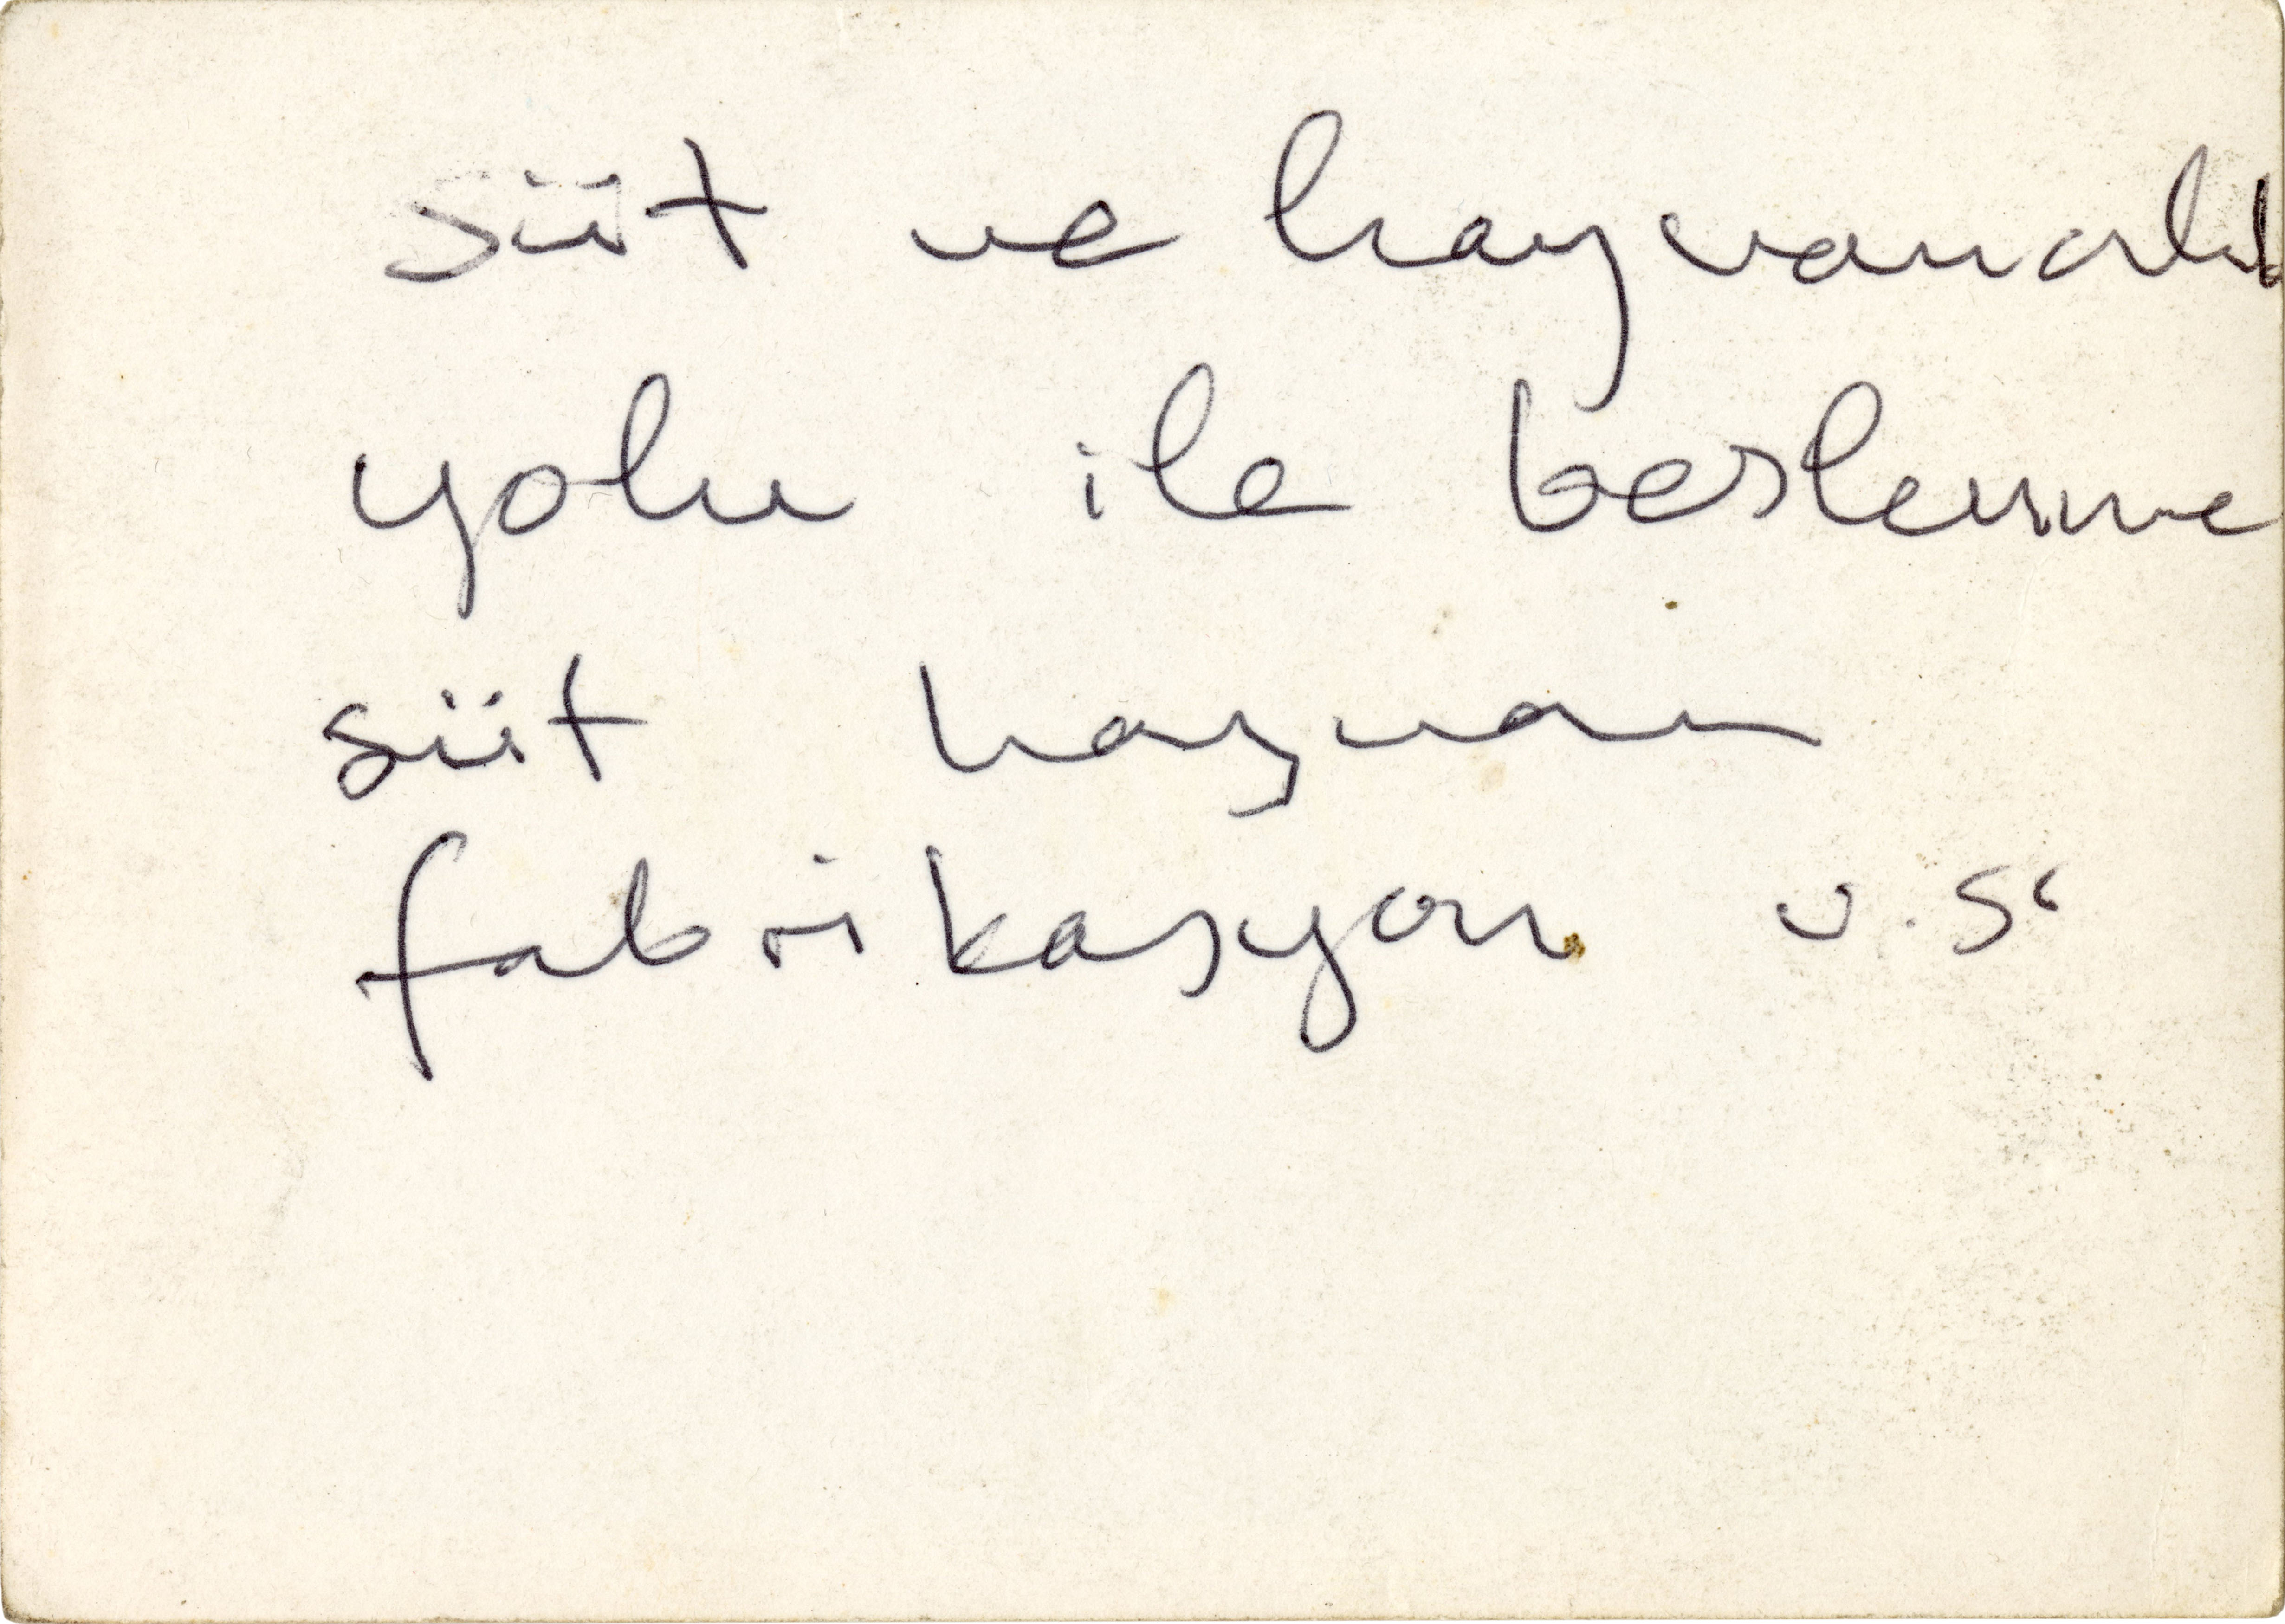 süt ve hayvancılık
yolu ile beslenme
süt hayvan
fabrikasyon v.s.